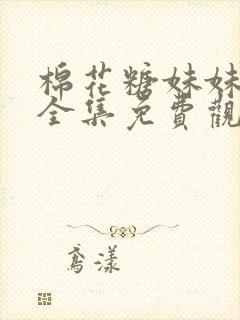 棉花糖妹妹
全集免費觀
鳶漾